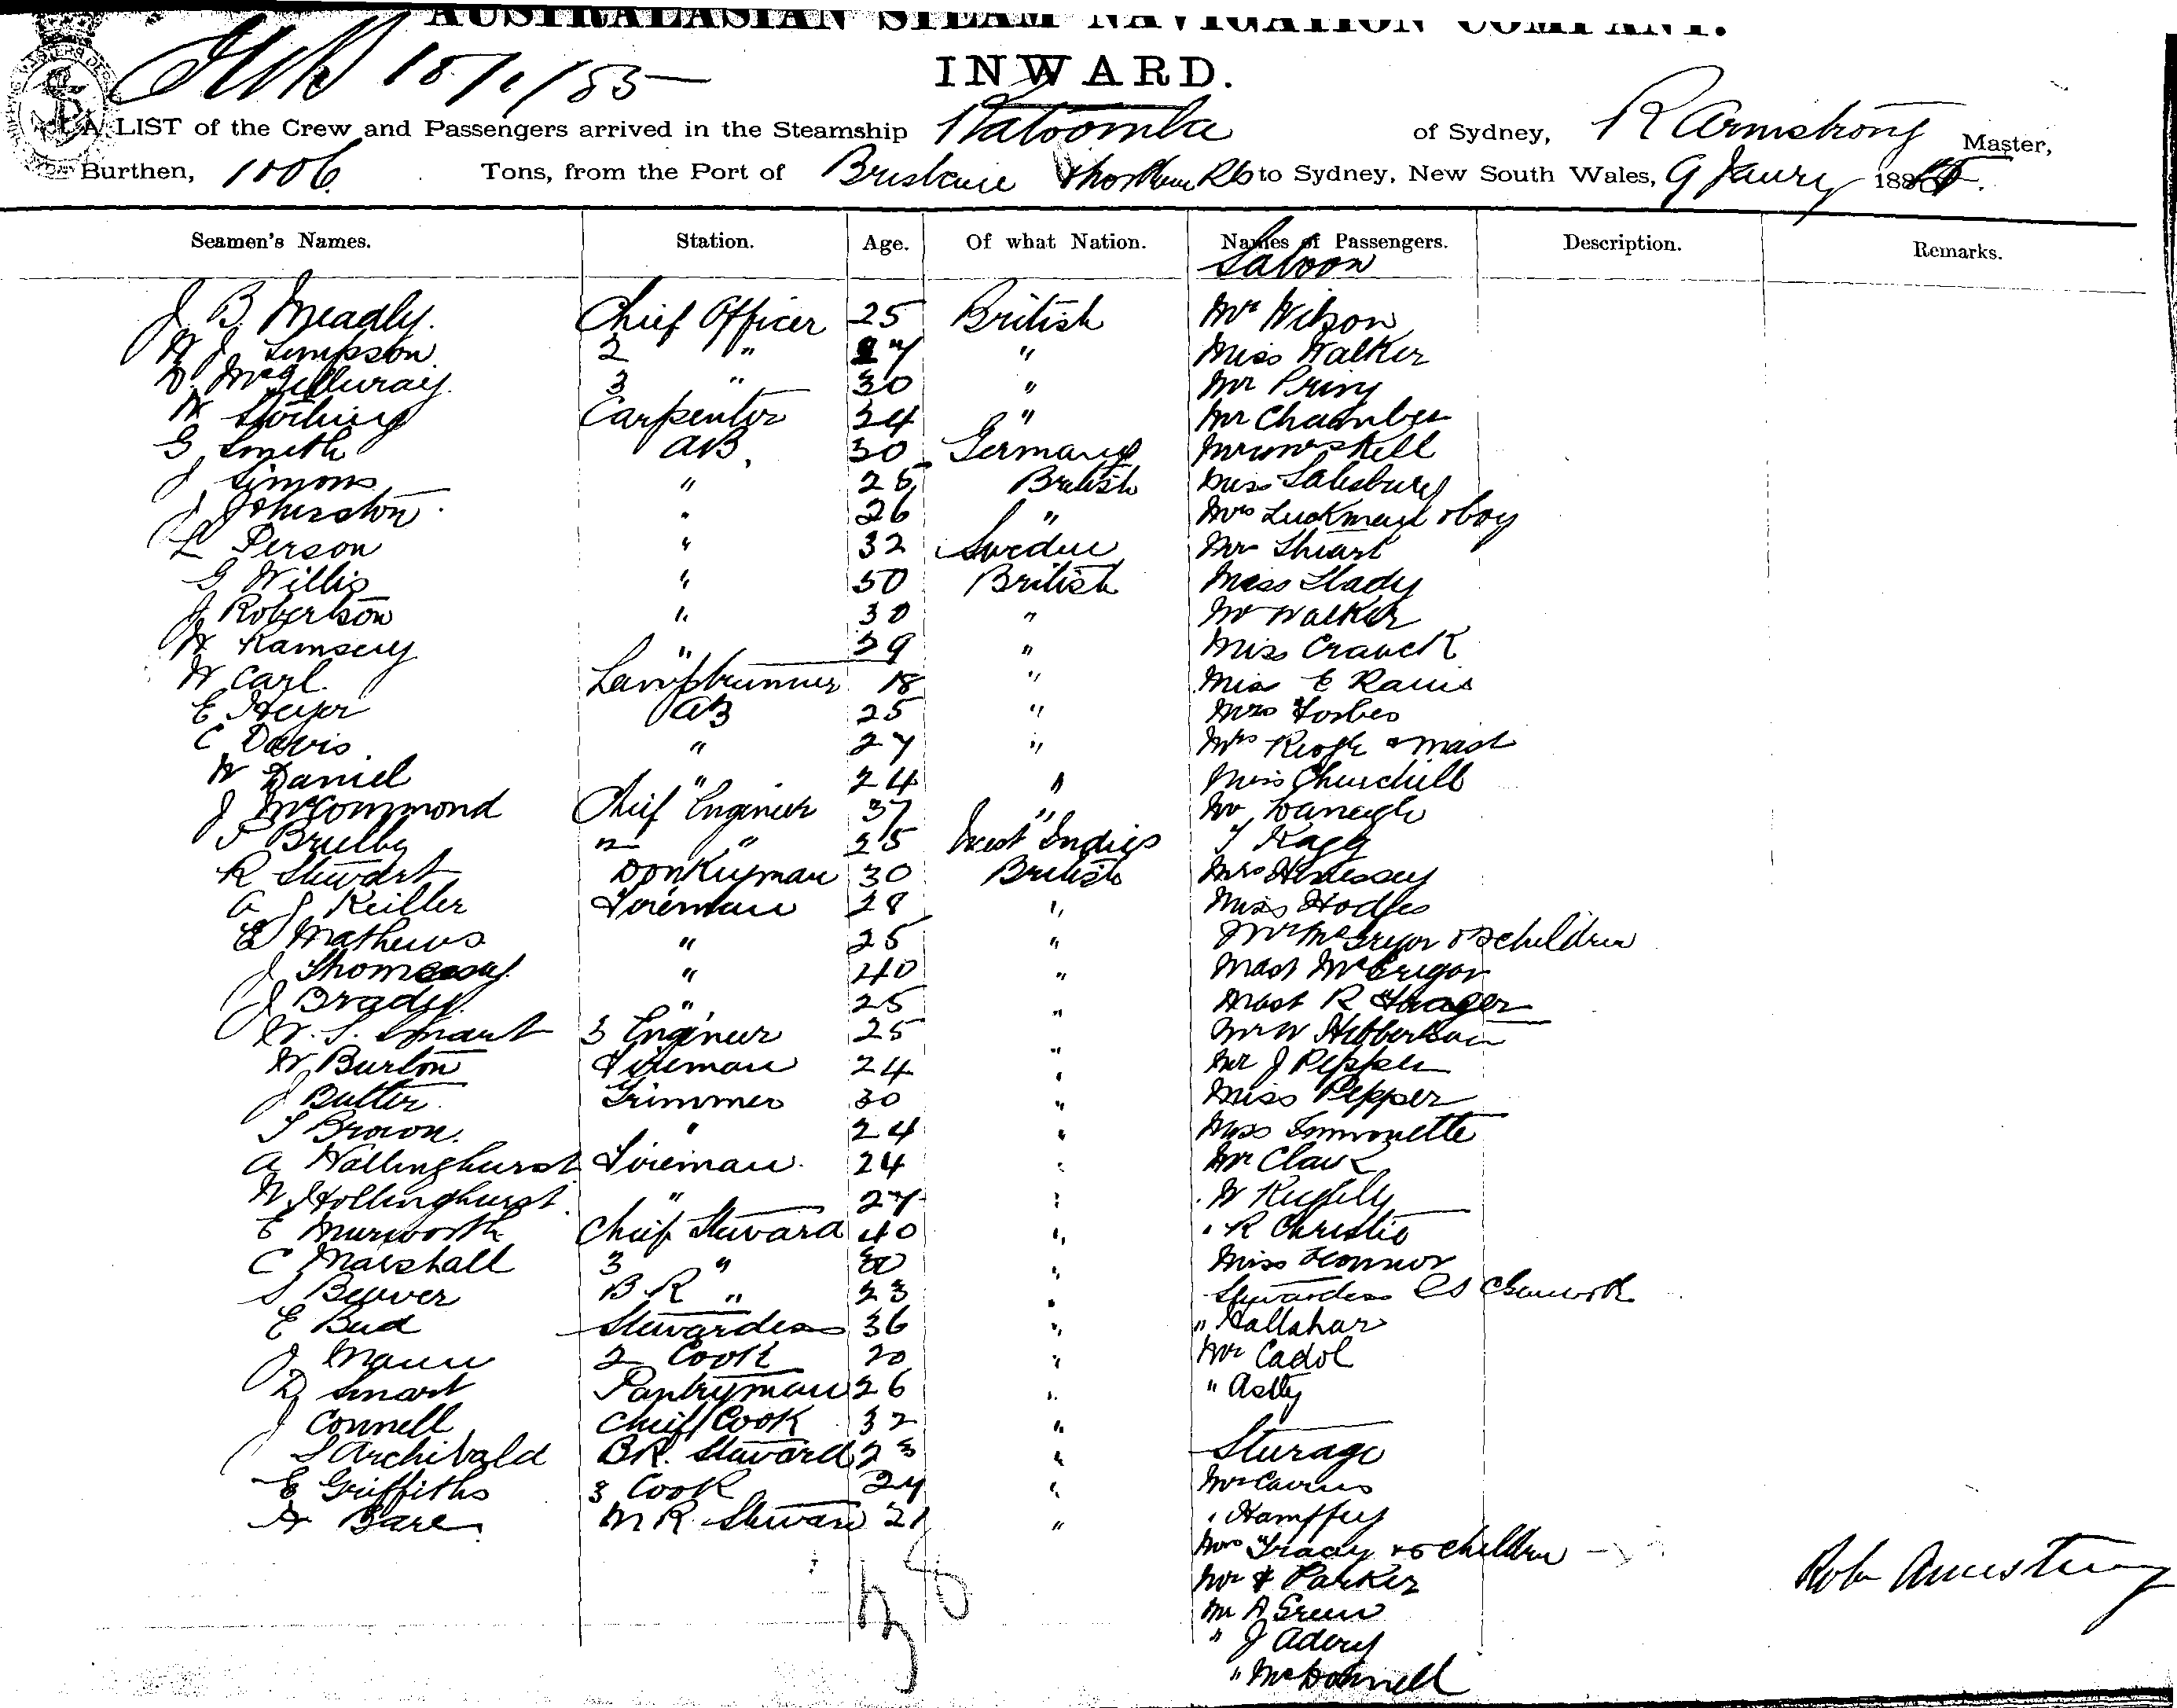 AUSTRALASIAN STEAM NAVIGATION COMPANY.
INWARD.
A LIST of the Crew and Passengers arrived in the Steamship Katoomba of Sydney, R Armstrong Master,
Burthen, 1006 Tons, from the Port of Brisbane to Sydney, New South Wales, 9 Janry 188
Seamen's Names. Station. Age. Of what Nation. Names of Passengers. Description. Remarks.
Saloon
J B Meadly. Chief Officer 25 British Mr Wilson
W J Simpson 2 " 27 " Miss Walker
D. McGilluray. 3 " 30 " Mr Pring
W Carpenter 24 " Mr Chamber
G Smith AB. 30 Germany Skell
J Simons " 25 British Miss Salisbury
J Johnston " 26 " Mrs & boy
L Person " 32 Sweden Mr
G Willis " 50 British Miss
J Robertson " 30 " Mr Walker
W Ramsey " 39 " Miss Cranck
W Carl Lamptrimmer 18 " Miss E
E Heyer AB 25 " Mrs Forbes
C Davis " 27 " Mrs Keogh & mast
W Daniel " 24 " Miss Churchill
J McCommond Chief Engineer 37 " Mr
Brulby 2 " 25 West Indies
R Stewart Donkeyman 30 British Mrs Henessey
A J Keiller Fireman 28 " Miss Hodges
E Mathews " 25 " McGregor & children
J " 40 " Mast McGregor
J Brady " 25 " Mast R
W. S. Smart 3 Engineer 25 " Mr W
W Burton Fireman 24 " Mr J Pepper
J Butter Trimmer 30 " Miss Pepper
T Brown. " 24 " Miss Simmonette
A Hallinghurst Fireman. 24 " Mr Clark
W Hollinghurst. " 27 " " W
E Murworth Chief Steward 40 " " R Christie
C Marshall 3 " 30 " Miss
S Beaver B R " 23 " Stewardess
E Bud Stewardess 36 " " Hallahar
J Mann 2 Cook 20 " Mr Cadol
D Smart Pantryman 26 " " Astly
J Connell Chief Cook 32 "
S Archibald BR. Steward 23 " Sturage
E Griffiths 3 Cook 24 " Mr Cairns
A Bare M R Steward 21 " " Hamffey
Mrs Tracey & 5 children
38 Mr & Parker
Mr A Green
" J Adery
" McDonnell